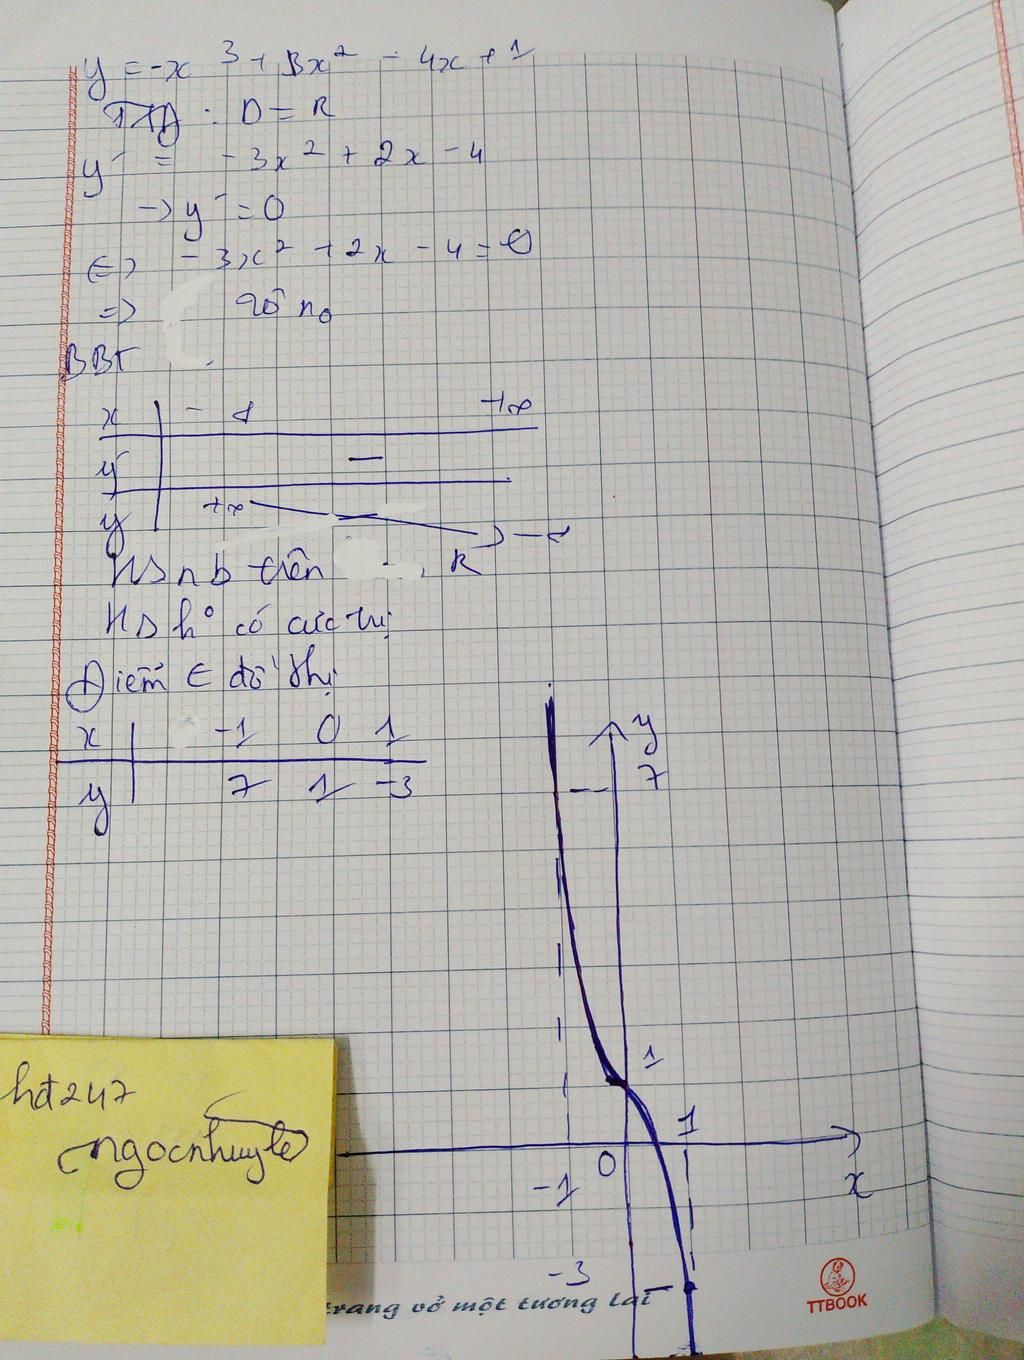 y = -x³ + 3x² - 4x + 1
TXĐ : D = R
y' = -3x² + 2x - 4
-> y' = 0
<=> -3x² + 2x - 4 = 0
=> vô no
BBT
x -∞ +∞
y' -
y +∞ -∞
HS nb trên R
HS ho có cực trị
Điểm ∈ đồ thị
x -1 0 1
y 7 1 -3
y
7
1
1
0
-1
x
-3
hđ247
ngocnhuyle
trang vở một tương lai
TTBOOK